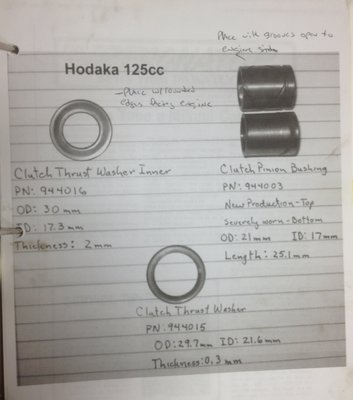 Place with grooves open to
engine side
Hodaka 125cc
-Place w/rounded
edges facing engine
Clutch Thrust Washer Inner
PN: 944016
OD: 30 mm
ID: 17.3 mm
Thickness: 2 mm
Clutch Pinion Bushing
PN: 944003
New Production-Top
Severely worn-Bottom
OD: 21 mm ID: 17 mm
Length: 25.1 mm
Clutch Thrust Washer
PN: 944015
OD: 29.7 mm ID: 21.6 mm
Thickness: 0.3 mm